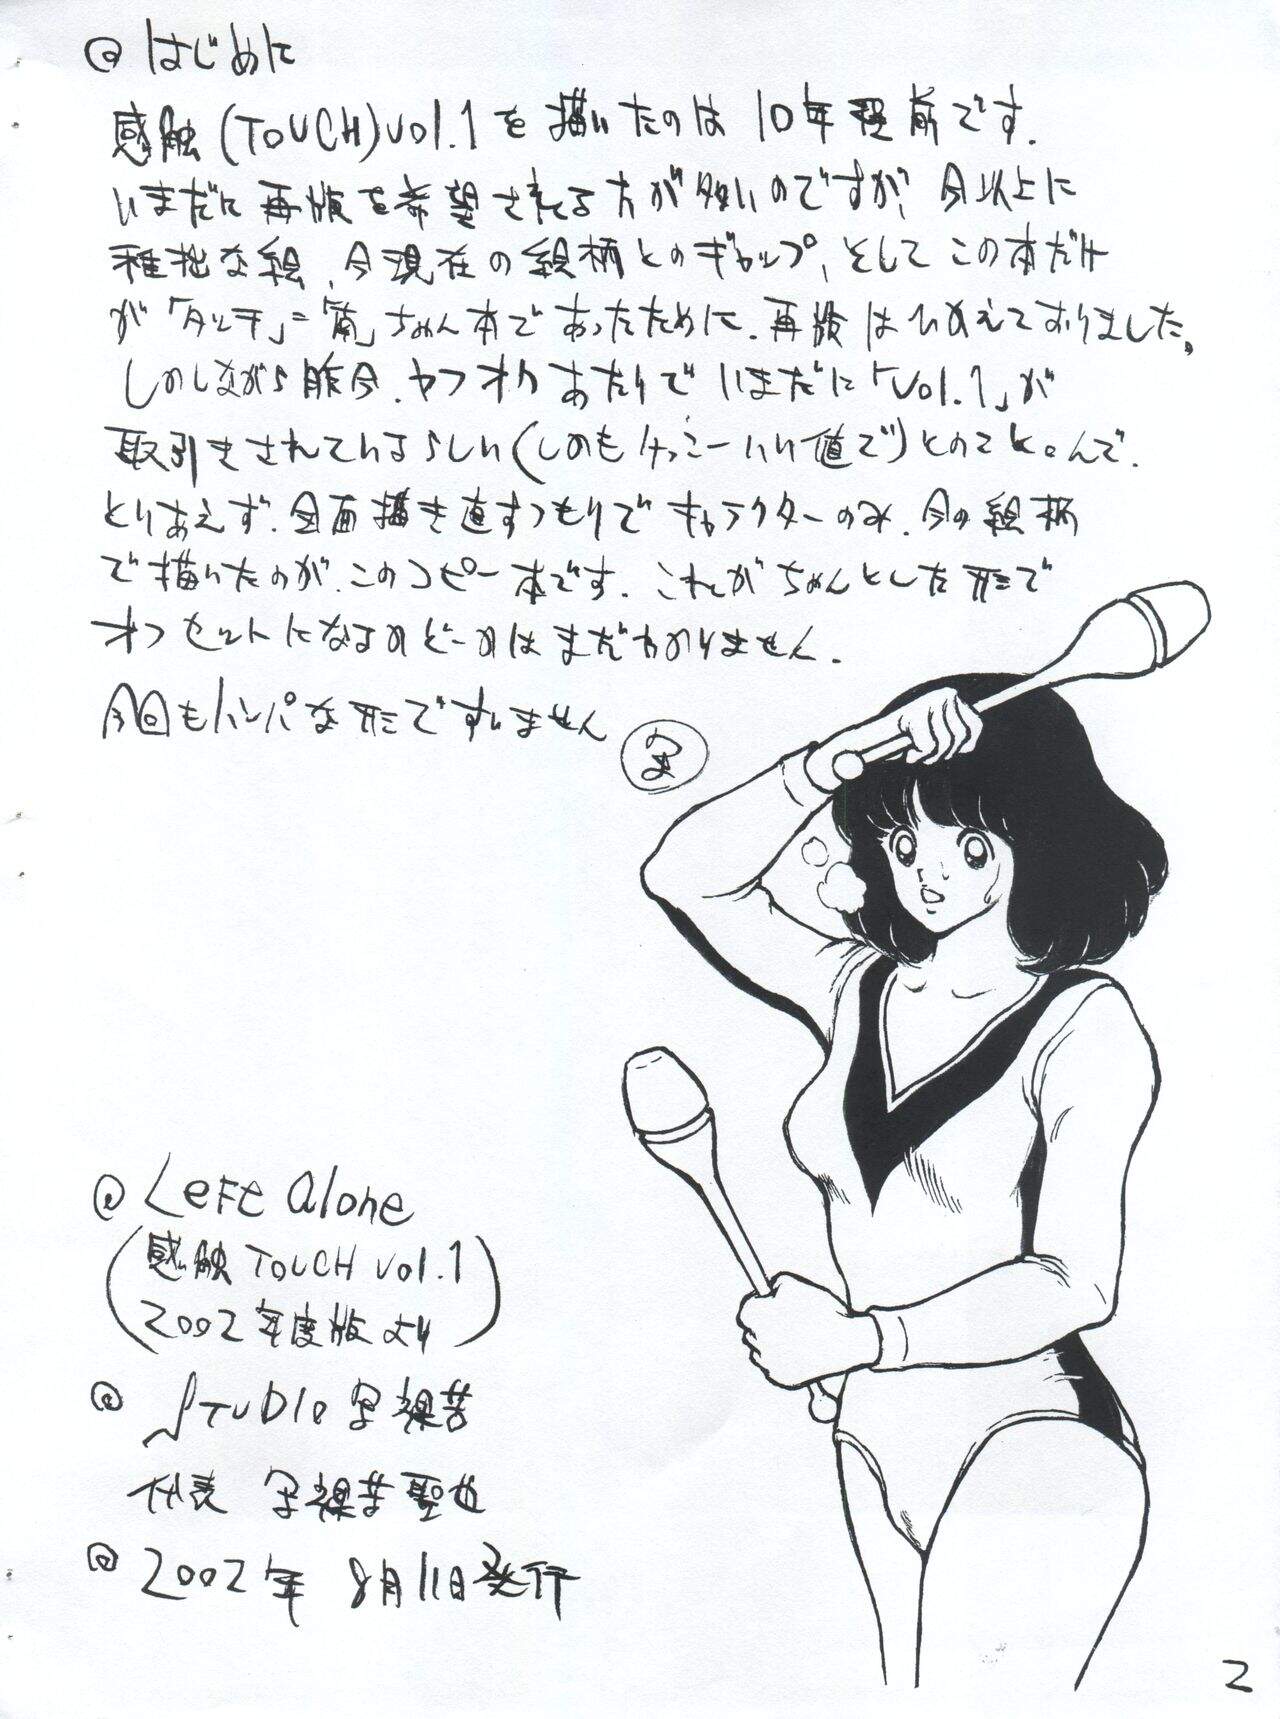 @ はじめに
感触(TOUCH)vol.1を描いたのは10年程前です.
いまだに再版を希望される方が多いのですが、今以上に
稚拙な絵、今現在の絵柄とのギャップ、そしてこの本だけ
が「タッチ」=「南」ちゃん本であったために.再版はひかえておりました。
しかしながら昨今.ヤフオクあたりでいまだに「vol.1」が
取引きされているらしい(しかもけっこーいい値で)とのことなんで.
とりあえず.全面描き直すつもりでキャラクターのみ.今の絵柄
で描いたのが.このコピー本です.これがちゃんとした形で
オフセットになるかどーかはまだわかりません.
今回もハンパな形ですいません
@ Left Alone
(感触 TOUCH vol.1
2002年度版より)
@ STUDIO 写裸苦
代表 写裸苦聖也
@ 2002年 8月11日発行
2